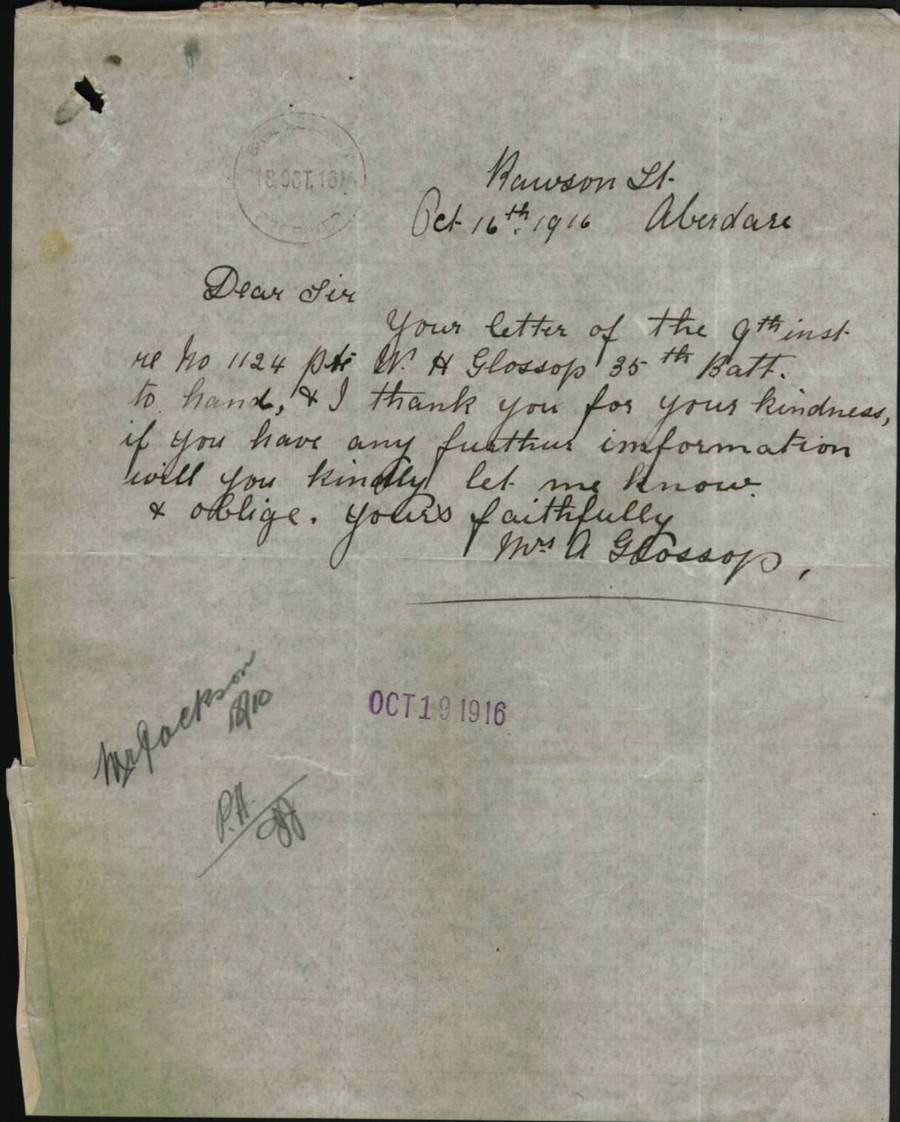 18 OCT. 16
Rawson St.
Oct 16th. 1916 Aberdare
Dear Sir
Your letter of the 9th inst
re No 1124 Pte W. H Glossop 35th Batt.
to hand, & I thank you for your kindness,
if you have any further imformation
will you kindly let me know.
& oblige. Yours faithfully
Mrs A Glossop,
Mr Jackson
18/10
OCT 19 1916
P.A.